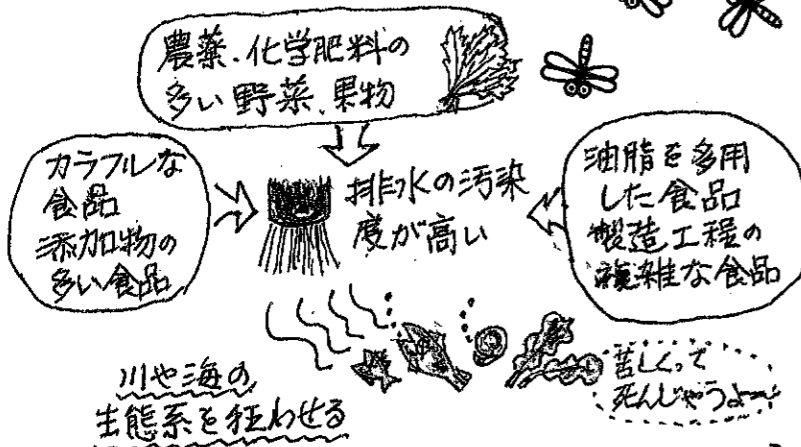 農薬.化学肥料の
多い野菜、果物
カラフルな
食品
添加物の
多い食品
排水の汚染
度が高い
油脂を多用
した食品
製造工程の
複雑な食品
川や海の
生態系を狂わせる
苦しくって
死んじゃうよー